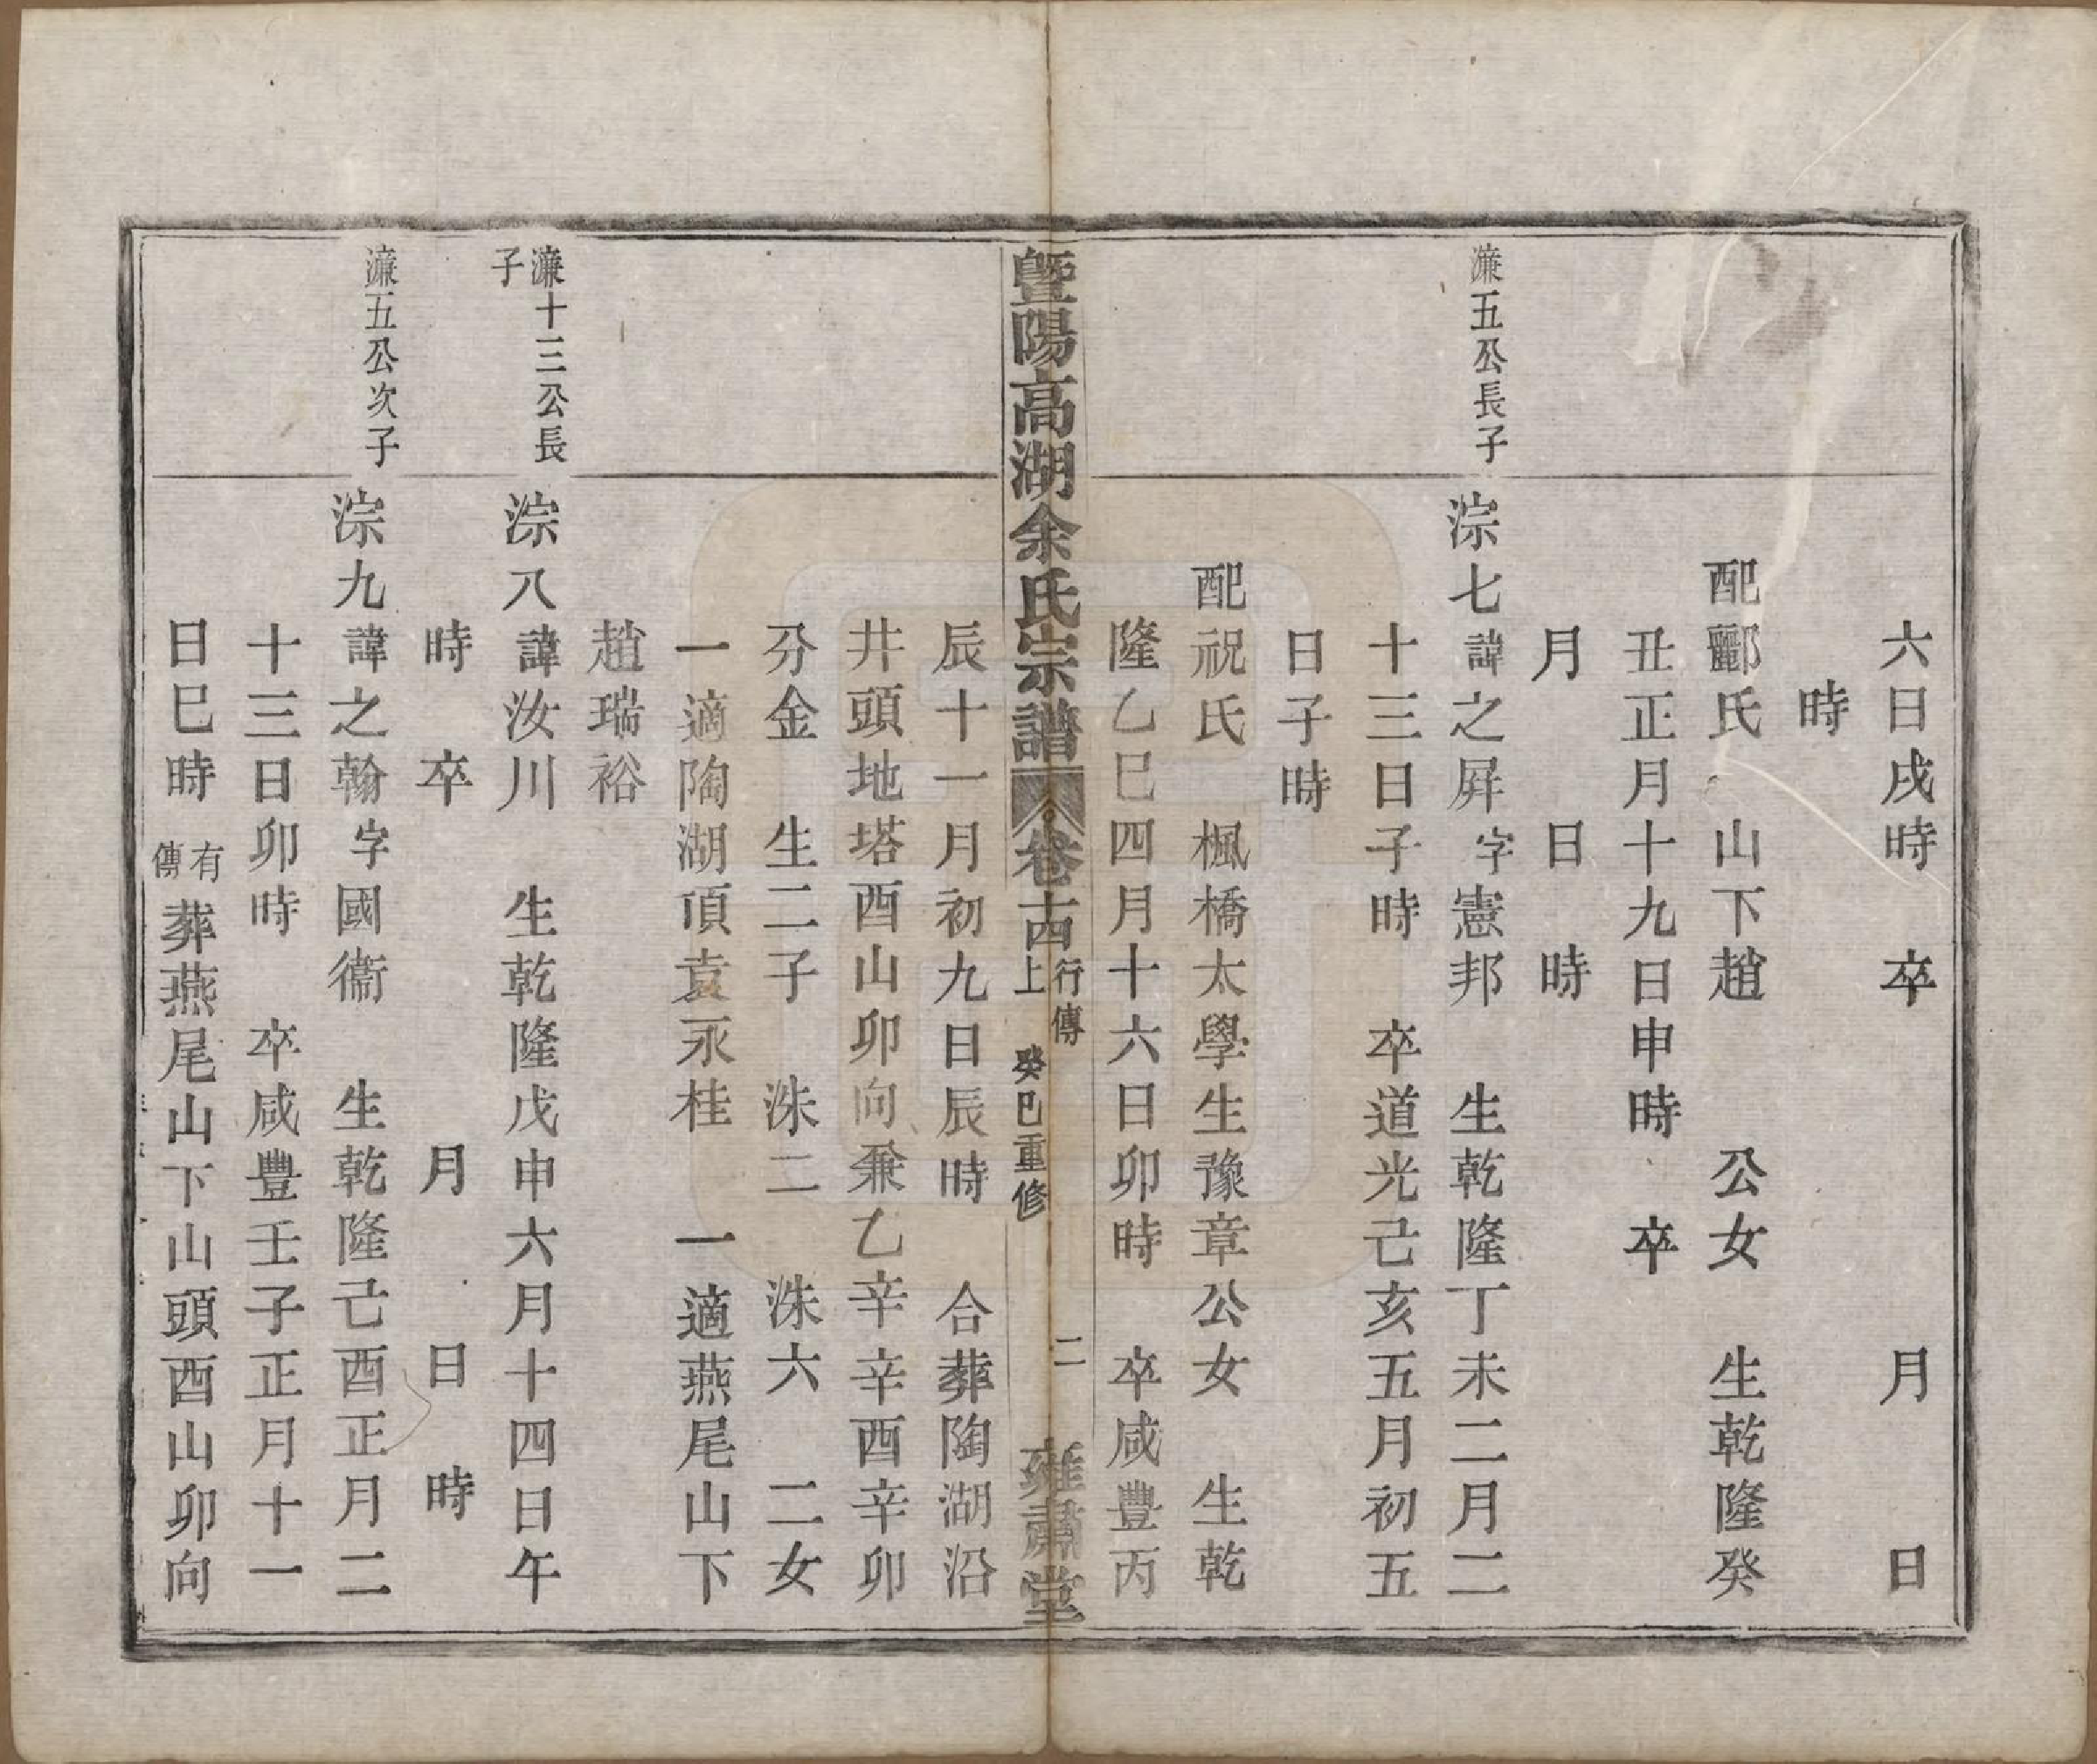 六日戌時　卒　月　日
時
配酈氏　山下趙　公女　生乾隆癸
丑正月十九日申時　卒
月　日　時
濂五公長子
淙七諱之屏字憲邦　生乾隆丁未二月二
十三日子時　卒道光己亥五月初五
日子時
配祝氏　楓橋太學生豫章公女　生乾
隆乙巳四月十六日卯時　卒咸豐丙
暨陽高湖余氏宗譜　卷十四上　行傳　癸巳重修　二　雍肅堂
辰十一月初九日辰時　合葬陶湖沿
井頭地塔酉山卯向兼乙辛辛酉辛卯
分金　生二子　洙二　洙六　二女
一適陶湖頂袁永桂　一適燕尾山下
趙瑞裕
濂十三公長子
淙八諱汝川　生乾隆戊申六月十四日午
時　卒　月　日　時
濂五公次子
淙九諱之翰字國衞　生乾隆己酉正月二
十三日卯時　卒咸豐壬子正月十一
日巳時　有傳　葬燕尾山下山頭酉山卯向